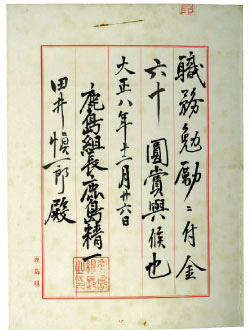 職務勉勵ニ付金
六十圓賞與候也
大正八年十二月廿六日
鹿島組長鹿島精一
田井慎一郎殿